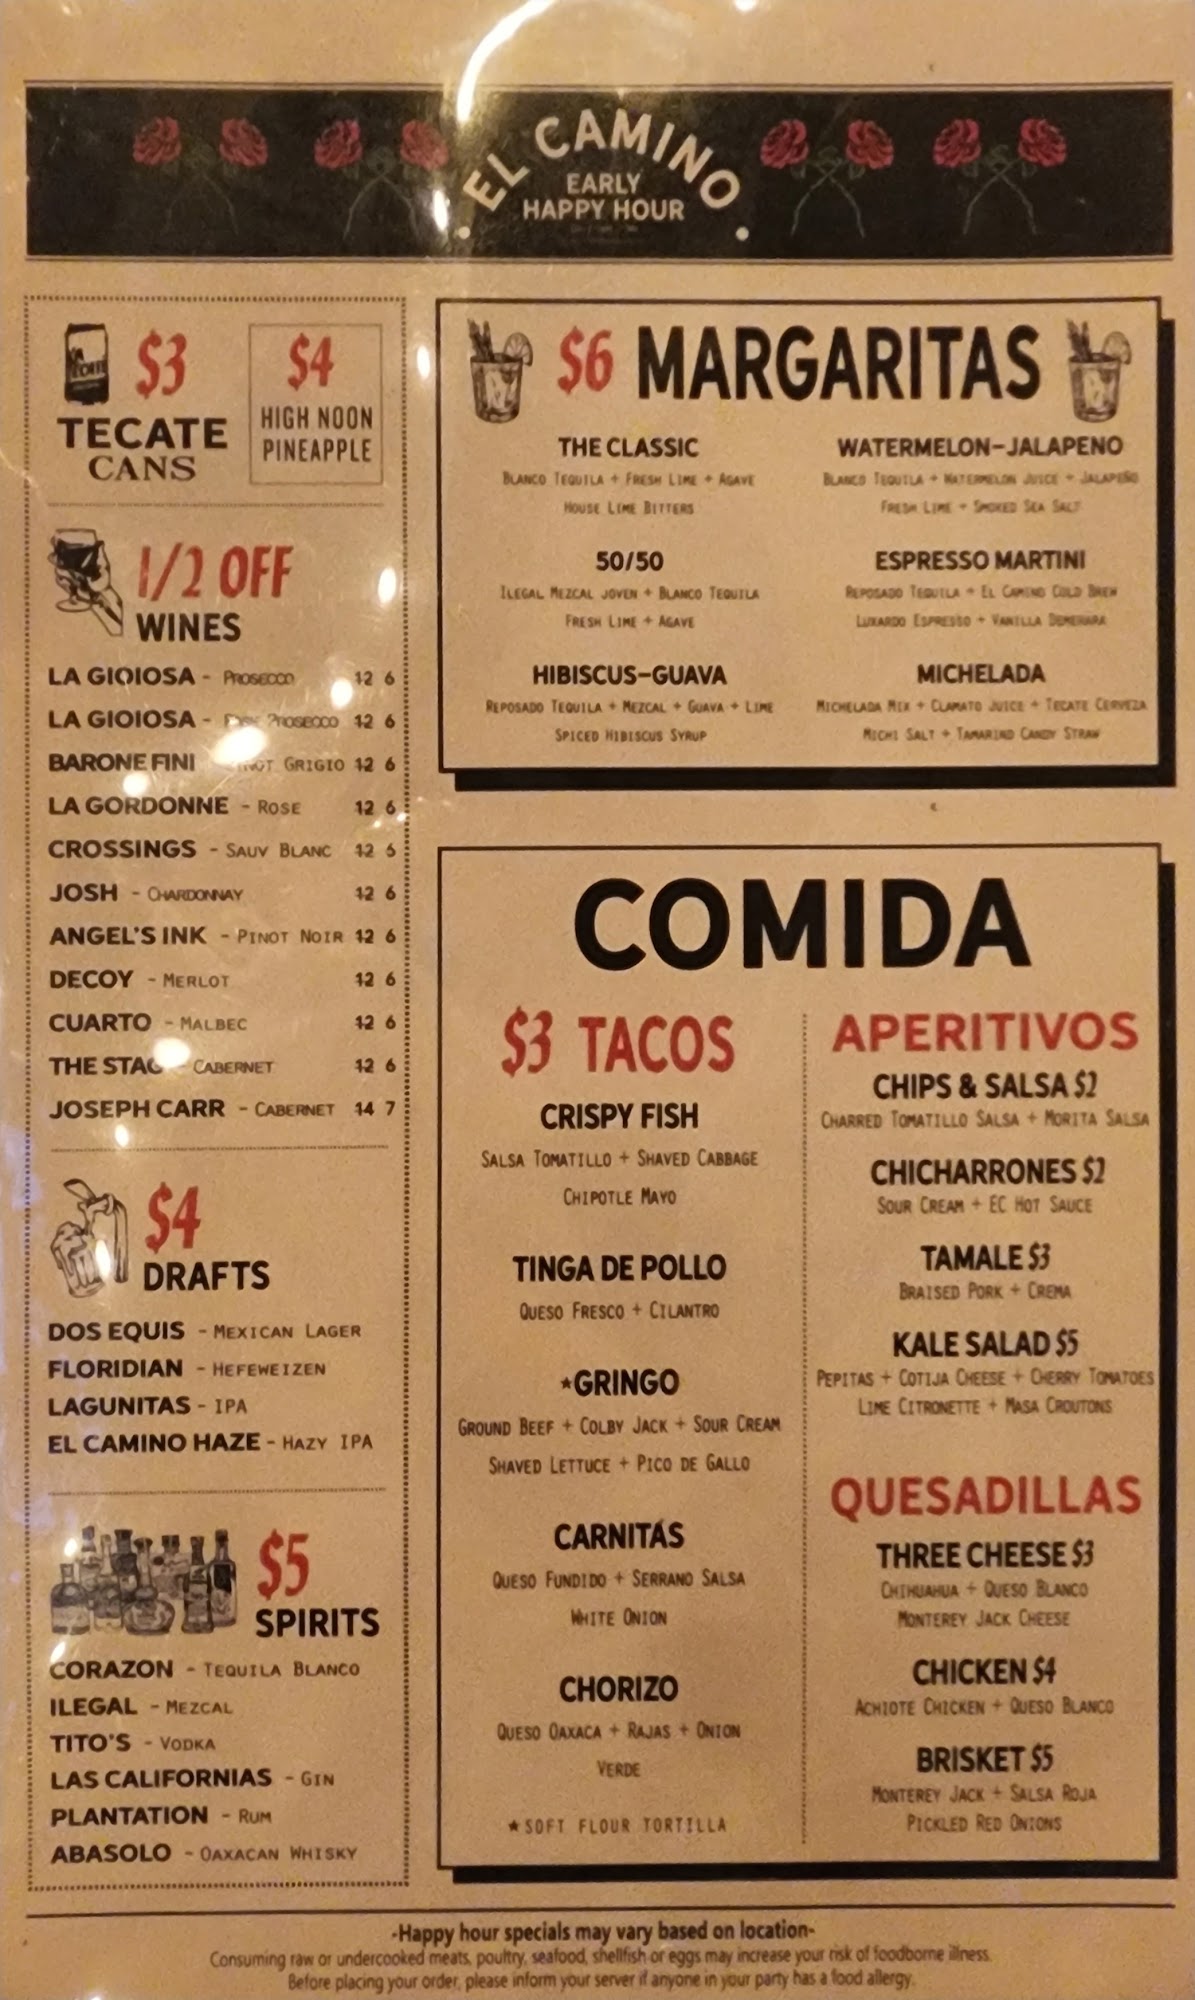 EL CAMINO
EARLY
HAPPY HOUR
$3
TECATE
CANS
$4
HIGH NOON
PINEAPPLE
1/2 OFF
WINES
LA GIOIOSA - PROSECCO 12 6
LA GIOIOSA - PROSECCO 12 6
BARONE FINI GRIGIO 12 6
LA GORDONNE - ROSE 12 6
CROSSINGS - SAUV BLANC 12 6
JOSH - CHARDONNAY 12 6
ANGEL'S INK - PINOT NOIR 12 6
DECOY - MERLOT 12 6
CUARTO - MALBEC 12 6
THE STAG - CABERNET 12 6
JOSEPH CARR - CABERNET 14 7
$4
DRAFTS
DOS EQUIS - MEXICAN LAGER
FLORIDIAN - HEFEWEIZEN
LAGUNITAS - IPA
EL CAMINO HAZE - HAZY IPA
$5
SPIRITS
CORAZON - TEQUILA BLANCO
ILEGAL - MEZCAL
TITO'S - VODKA
LAS CALIFORNIAS - GIN
PLANTATION - RUM
ABASOLO - OAXACAN WHISKY
$6 MARGARITAS
THE CLASSIC
BLANCO TEQUILA + FRESH LIME + AGAVE
HOUSE LIME BITTERS
50/50
ILEGAL MEZCAL JOVEN + BLANCO TEQUILA
FRESH LIME + AGAVE
HIBISCUS-GUAVA
REPOSADO TEQUILA + MEZCAL + GUAVA + LIME
SPICED HIBISCUS SYRUP
WATERMELON-JALAPENO
BLANCO TEQUILA + WATERMELON JUICE + JALAPEÑO
FRESH LIME + SMOKED SEA SALT
ESPRESSO MARTINI
REPOSADO TEQUILA + EL CAMINO COLD BREW
LUXARDO ESPRESSO + VANILLA DEMERARA
MICHELADA
MICHELADA MIX + CLAMATO JUICE + TECATE CERVEZA
MICHI SALT + TAMARIND CANDY STRAW
COMIDA
$3 TACOS
CRISPY FISH
SALSA TOMATILLO + SHAVED CABBAGE
CHIPOTLE MAYO
TINGA DE POLLO
QUESO FRESCO + CILANTRO
★GRINGO
GROUND BEEF + COLBY JACK + SOUR CREAM
SHAVED LETTUCE + PICO DE GALLO
CARNITAS
QUESO FUNDIDO + SERRANO SALSA
WHITE ONION
CHORIZO
QUESO OAXACA + RAJAS + ONION
VERDE
★SOFT FLOUR TORTILLA
APERITIVOS
CHIPS & SALSA $2
CHARRED TOMATILLO SALSA + MORITA SALSA
CHICHARRONES $2
SOUR CREAM + EC HOT SAUCE
TAMALE $3
BRAISED PORK + CREMA
KALE SALAD $5
PEPITAS + COTIJA CHEESE + CHERRY TOMATOES
LIME CITRONETTE + MASA CROUTONS
QUESADILLAS
THREE CHEESE $3
CHIHUAHUA + QUESO BLANCO
MONTEREY JACK CHEESE
CHICKEN $4
ACHIOTE CHICKEN + QUESO BLANCO
BRISKET $5
MONTEREY JACK + SALSA ROJA
PICKLED RED ONIONS
-Happy hour specials may vary based on location-
Consuming raw or undercooked meats, poultry, seafood, shellfish or eggs may increase your risk of foodborne illness.
Before placing your order, please inform your server if anyone in your party has a food allergy.